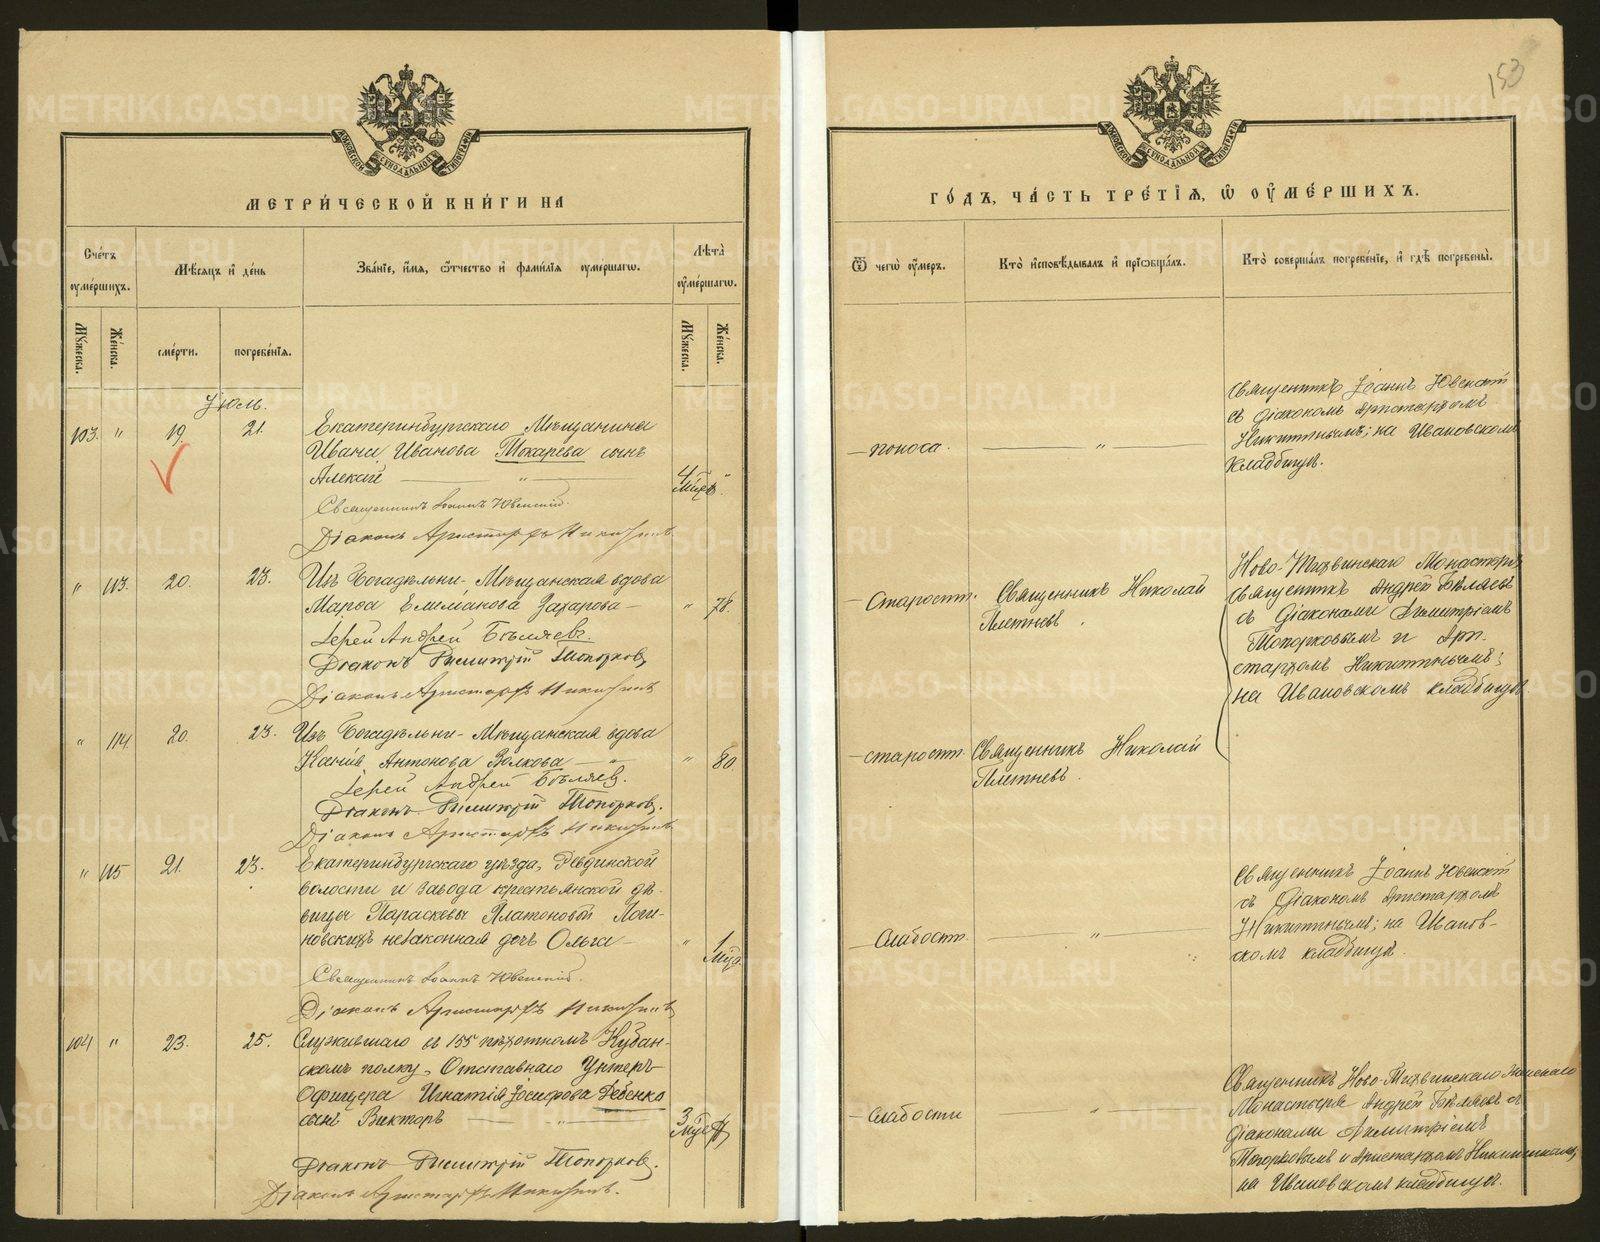 153
ДУХОВНОЙ СУНОДАЛЬНОЙ ТИПОГРАФІИ
МЕТРИ́ЧЕСКОЙ КНИ́ГИ НА
Сче́тъ ᲂумершихъ.
Мѣсяцъ и де́нь
Зва́ніе, и́мя, ѻ҆́тчество и҆ фами́лія ᲂумершагѡ.
Лѣта̀ ᲂумершагѡ.
Мꙋ́жеска.
Же́нска.
сме́рти.
погребе́нія.
Мꙋ́жеска.
Же́нска.
Іюль.
103. " 19. 21. Екатеринбургскаго Мѣщанина
Ивана Иванова Токарева сынъ
Алексій — " —
4 мѣс. "
Священникъ Іоаннъ Ювенскій.
Діаконъ Аристархъ Никитинъ.
" 113. 20. 23. Изъ Богадѣльни - Мѣщанская вдова
Марѳа Емеліанова Захарова — " 78.
Іерей Андрей Бѣляевъ.
Діаконъ Димитрій Топорковъ,
Діаконъ Аристархъ Никитинъ
" 114 20. 23. Изъ Богадѣльни - Мѣщанская вдова
Ксенія Антонова Волкова — " — " 80.
Іерей Андрей Бѣляевъ.
Діаконъ Димитрій Топорковъ.
Діаконъ Аристархъ Никитинъ
" 115 21. 23. Екатеринбургскаго уѣзда, Ревдинской
волости и завода крестьянской дѣ-
вицы Параскевы Платоновой Логи-
новскихъ незаконная дочь Ольга — " 1
Священникъ Іоаннъ Ювенскій.
Діаконъ Аристархъ Никитинъ
104 " 23. 25. Служившаго въ 155 пѣхотномъ Кубан-
скомъ полку, Отставнаго Унтеръ-
Офицера Игнатія Іосифова Ребенко
сынъ Викторъ — " — 3
Діаконъ Димитрій Топорковъ.
Діаконъ Аристархъ Никитинъ.
ДУХОВНОЙ СУНОДАЛЬНОЙ ТИПОГРАФІИ
ГО́ДЪ, ЧА́СТЬ ТРЕ́ТІЯ, Ѡ ОУМЕ́РШИХЪ.
Ѿ чегѡ̀ ᲂу҆́меръ.
Кто̀ и҆сповѣ́дывалъ и҆ пріѡбща́лъ.
Кто̀ соверша́лъ погребе́ніе, и҆ гдѣ̀ погребены̀.
— поноса. — " —
Священникъ Іоаннъ Ювенскій
съ діакономъ Аристархомъ
Никитинымъ; на Ивановскомъ
кладбищѣ.
— Старости. Священникъ Николай
Плетневъ.
Ново-Тихвинскаго Монастыря
священникъ Андрей Бѣляевъ
съ діаконами Димитріемъ
Топорковымъ и Ари-
стархомъ Никитинымъ;
на Ивановскомъ кладбищѣ.
— старости. Священникъ Николай
Плетневъ.
— Слабости. — " —
Священникъ Іоаннъ Ювенскій
съ діакономъ Аристархомъ
Никитинымъ; на Иванов-
скомъ кладбищѣ.
— слабости — " —
Священникъ Ново-Тихвинскаго Женскаго
Монастыря Андрей Бѣляевъ съ
діаконами Димитріемъ
Топорковымъ и Аристархомъ Никитинымъ,
на Ивановскомъ кладбищѣ.
METRIKI.GASO-URAL.RU